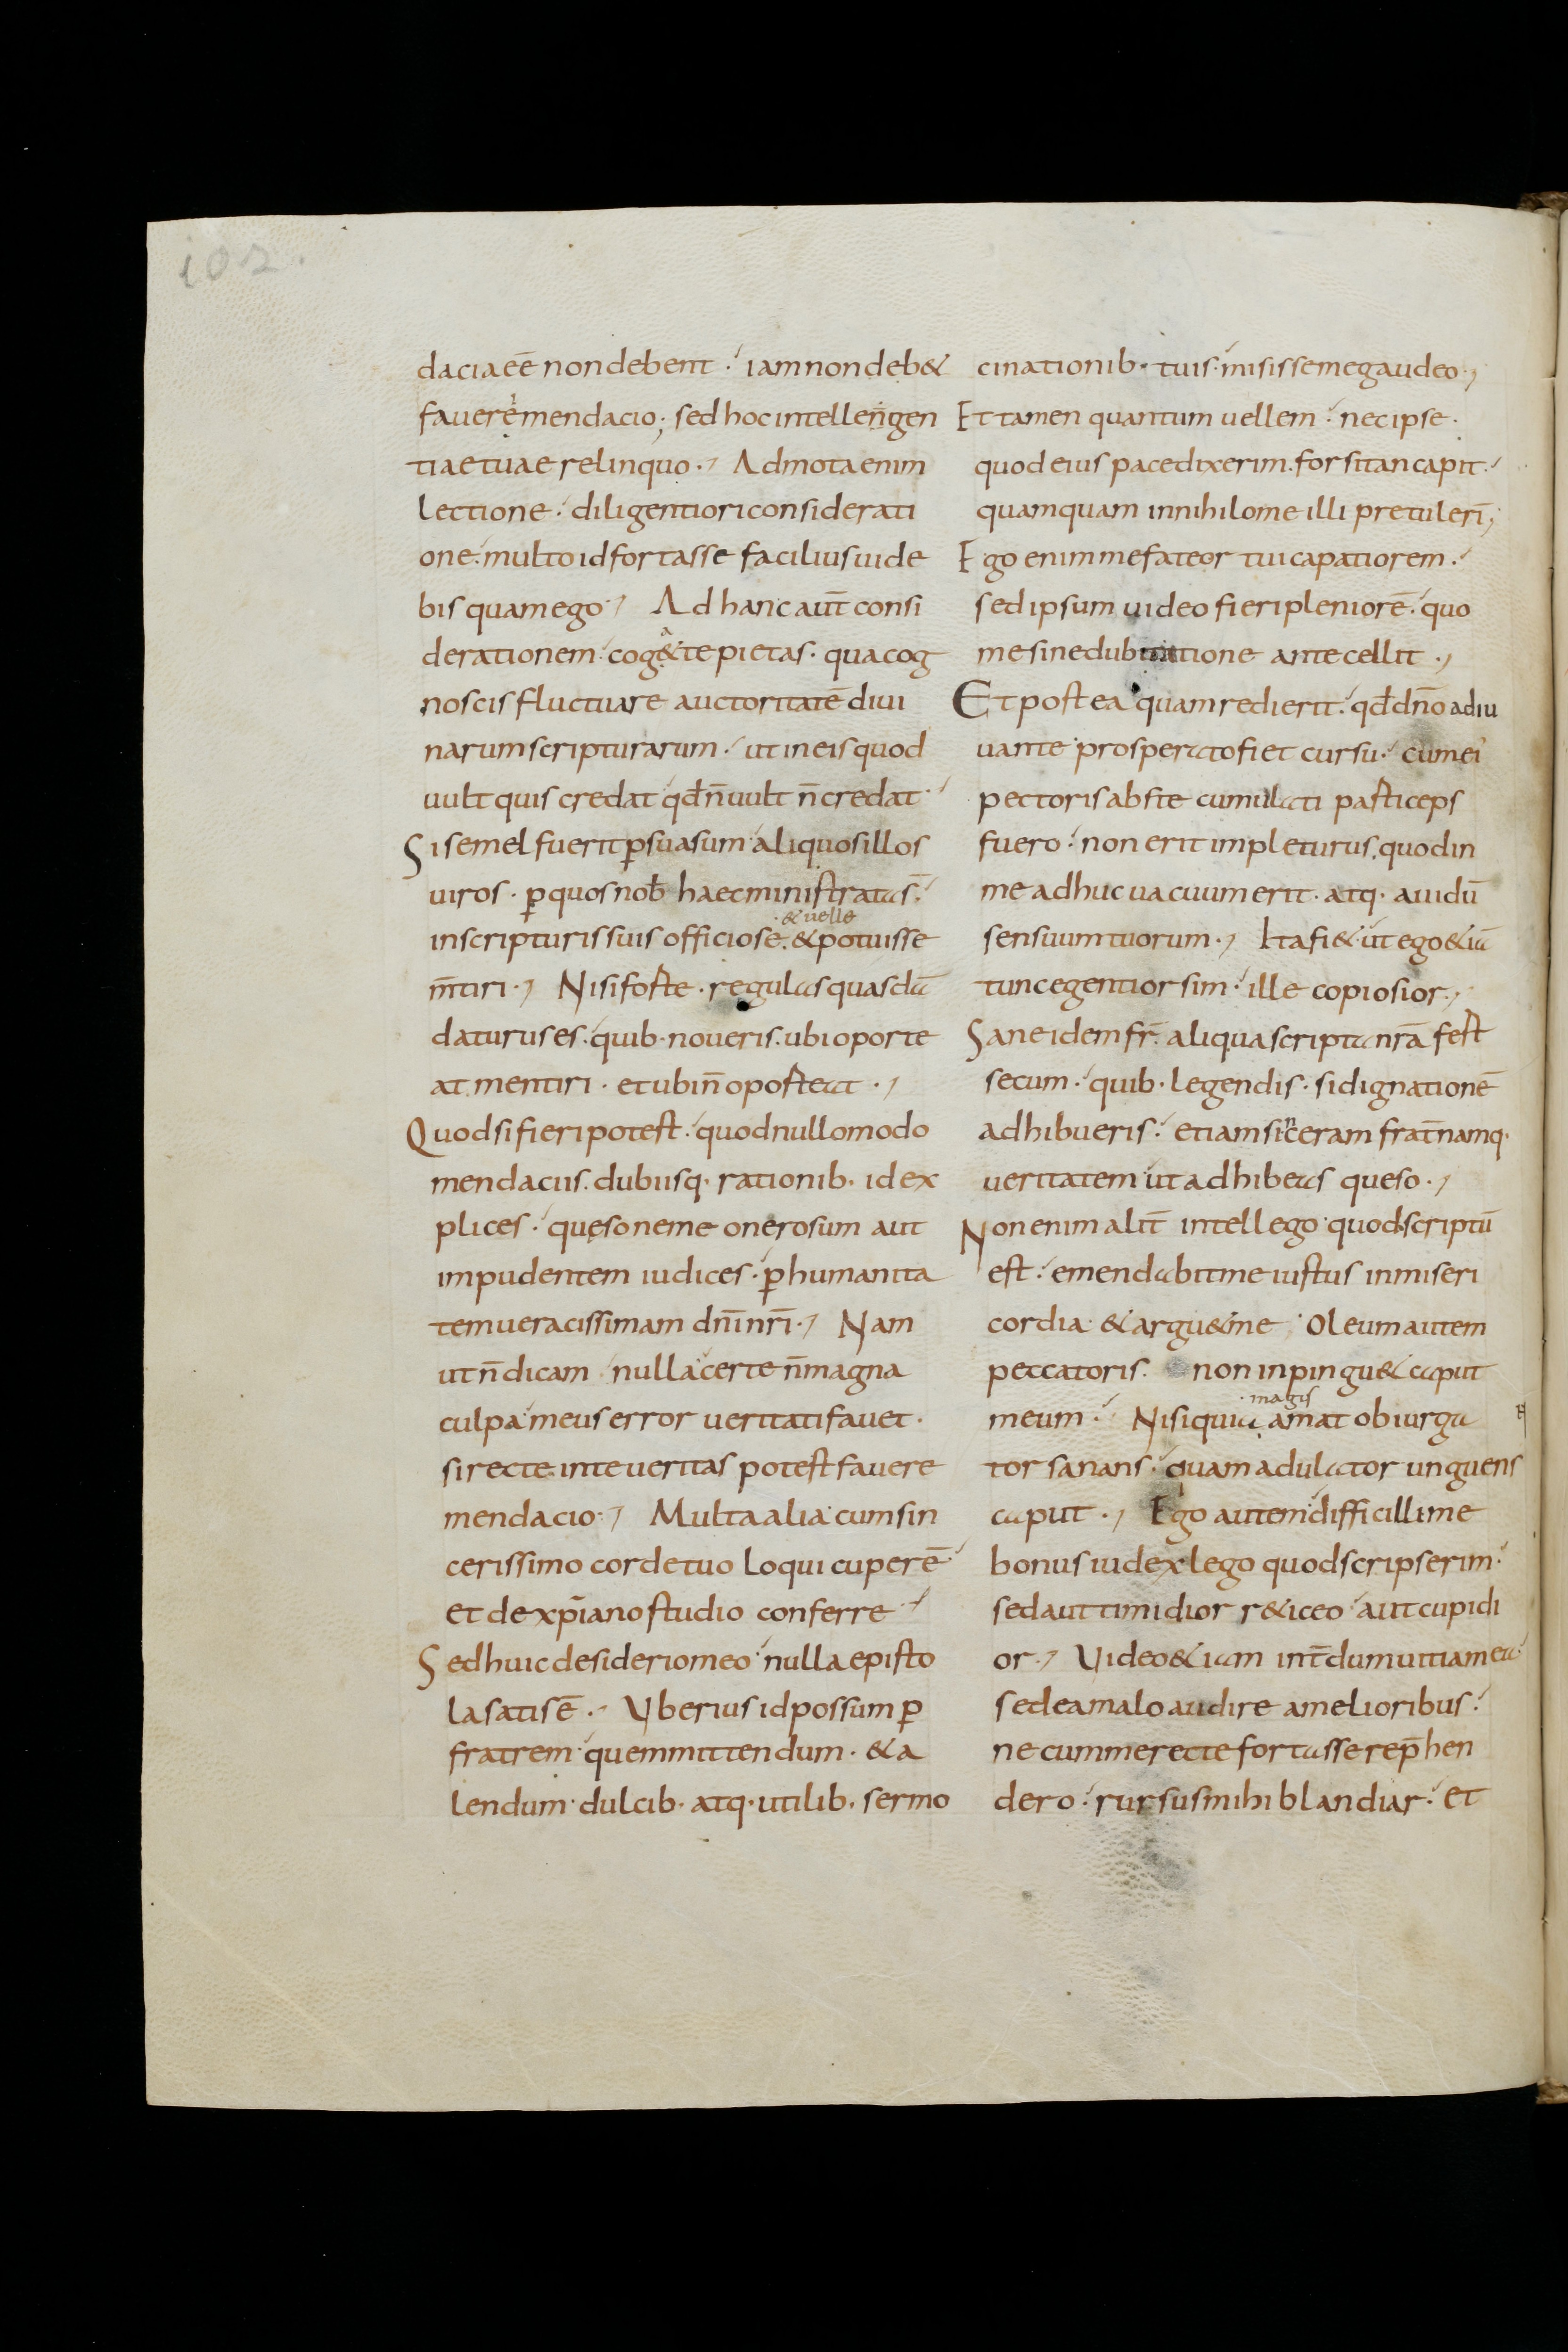 102.
daciaeē nondebent · iamnondeb&
fauere mendacio; sed hoc intellengen
tiae tuae relinquo · Admota enim
lectione · diligentiori considerati
one · multo id fortasse facilius uide
bis quam ego · Ad hanc aut̄ consi
derationem · cog&te pietas · qua cog
noscis fluctuare auctoritatē diui
narum scripturarum · ut in eis quod
uult quis credat qd̄ n̄ uult n̄ credat ·
Si semel fuerit ꝑsuasum aliquos illos
uiros · ꝑ quos nob̄ haec ministrata s̄ ·
· & uelle
in scripturis suis officiose · & potuisse
m̄tiri · Nisi forte · regulas quasdā
daturus es · quib· noueris · ubi oporte
at mentiri · et ubi n̄ oporteat ·
Quod si fieri potest · quod nullo modo
mendaciis · dubiisq· rationib· id ex
plices · quęso ne me onerosum aut
impudentem iudices · ꝑ humanita
tem ueracissimam dn̄i nr̄i · Nam
ut n̄ dicam nulla certe n̄ magna
culpa meus error ueritati fauet ·
si recte in te ueritas potest fauere
mendacio · Multa alia cum sin
cerissimo corde tuo loqui cuperē ·
et de xp̄iano studio conferre ·
Sed huic desiderio meo · nulla episto
la satis ē · Uberius id possum ꝑ
fratrem · quem mittendum · & a
lendum · dulcib· atq· utilib· sermo
cinationib· tuis · misisse me gaudeo ·
Et tamen quantum uellem · nec ipse ·
quod eius pace dixerim · forsitan capit ·
quamquam in nihilo me illi pretulerī;
Ego enim me fateor tui capatiorem ·
sed ipsum uideo fieri pleniorē · quo
me sine dubitatione antecellit ·
Et postea quam redierit · qd̄ dn̄o adiu
uante prosperato fiet cursu · cum ei
pectoris abs te cumulati particeps
fuero · non erit impleturus · quod in
me adhuc uacuum erit · atq· auidū
sensuum tuorum · Ita fi& ut ego &iā
tunc egentior sim · ille copiosior ·
Sane idem fr̄ · aliqua scripta nr̄a fert
secum · quib· legendis · si dignationē
adhibueris · etiam sinceram frat̄namq·
ueritatem ut adhibeas queso ·
Non enim alit̄ intellego quod scriptū
est · emendabit me iustus in miseri
cordia & argu& me · Oleum autem
peccatoris · non inpingu& caput
· magis
meum · Nisi quia amat obiurga
tor sanans · quam adulator unguens
caput · Ego autem difficillime
bonus iudex lego quod scripserim ·
sed aut timidior r&iceo · aut cupidi
or · Uideo &iam int̄dum uitia mea ·
sed ea malo audire a melioribus ·
ne cum me recte fortasse rep̄hen
dero · rursus mihi blandiar · et